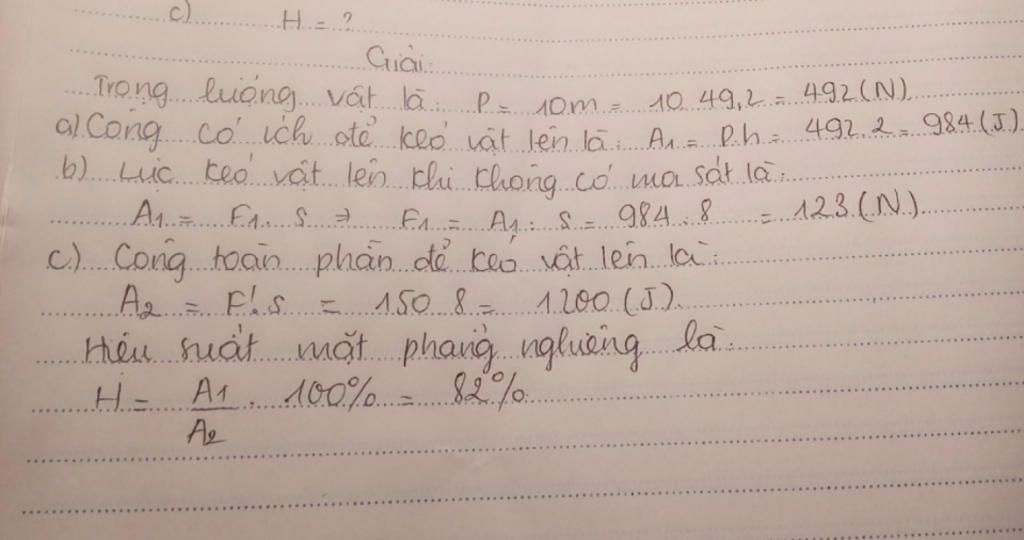 c) H = ?
Giải:
Trọng lượng vật là: P = 10m = 10.49,2 = 492 (N)
a) Công có ích để kéo vật lên là: A1 = P.h = 492.2 = 984 (J)
b) Lực kéo vật lên khi không có ma sát là:
A1 = F1.s ⇒ F1 = A1 : s = 984 : 8 = 123 (N)
c) Công toàn phần để kéo vật lên là:
A2 = F'.s = 150.8 = 1200 (J).
Hiệu suất mặt phẳng nghiêng là:
H = A1/A2 . 100% = 82%